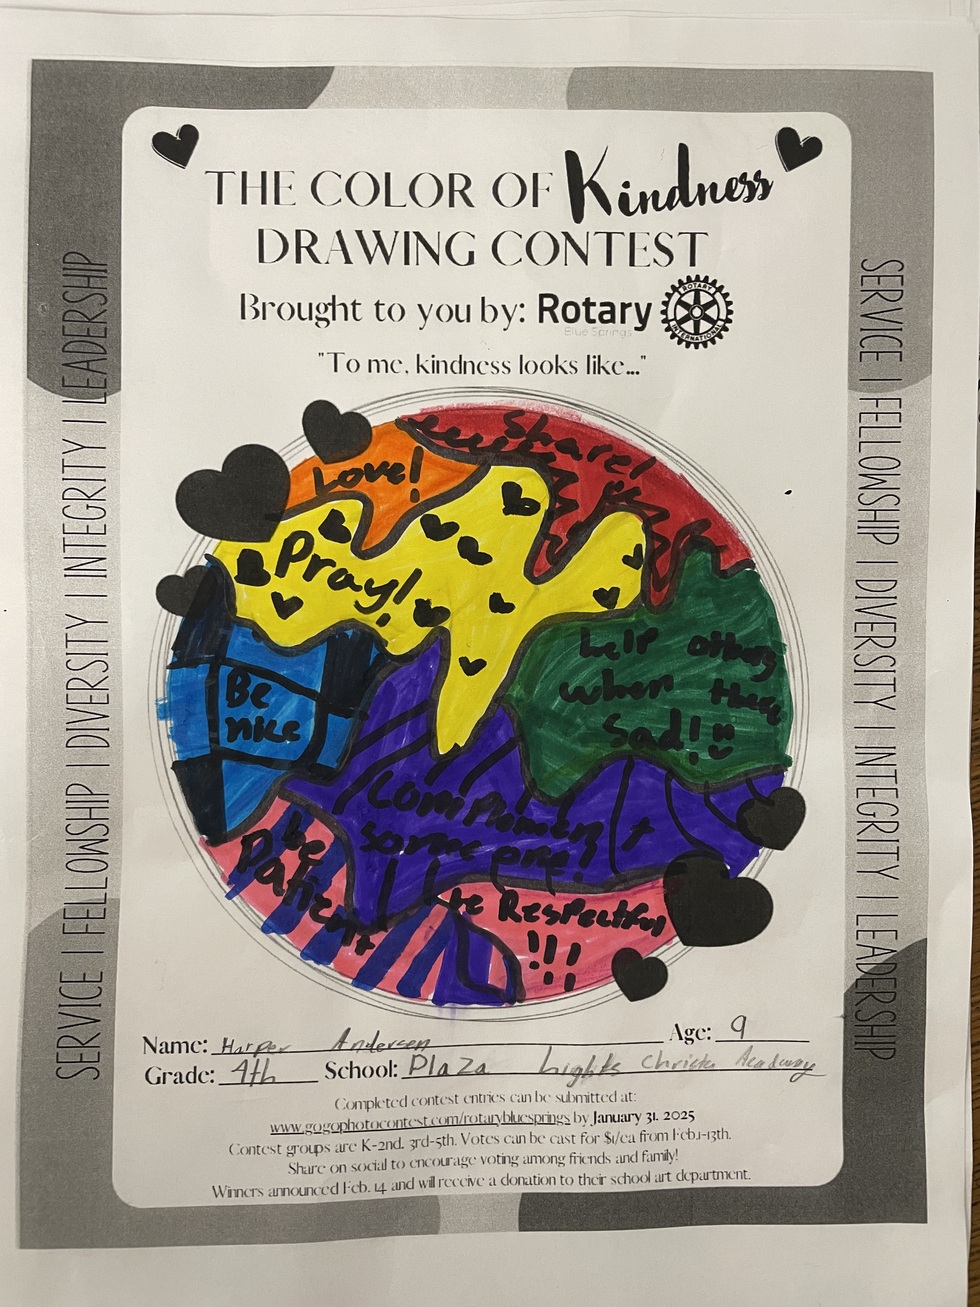 THE COLOR OF Kindness
DRAWING CONTEST
Brought to you by: Rotary
Blue Springs
ROTARY
INTERNATIONAL
"To me, kindness looks like..."
Share!
Love!
Pray!
Help others
when there
Sad!
Be
nice
Compliment
someone!
be
Patient
be Respectful
!!!
Name: Harper Andersen Age: 9
Grade: 4th School: Plaza Lights Academy
Completed contest entries can be submitted at:
www.gogophotocontest.com/rotarybluesprings by January 31, 2025
Contest groups are K-2nd, 3rd-5th. Votes can be cast for $1/ea from Feb.1-13th.
Share on social to encourage voting among friends and family!
Winners announced Feb. 14 and will receive a donation to their school art department.
SERVICE | FELLOWSHIP | DIVERSITY | INTEGRITY | LEADERSHIP
SERVICE | FELLOWSHIP | DIVERSITY | INTEGRITY | LEADERSHIP